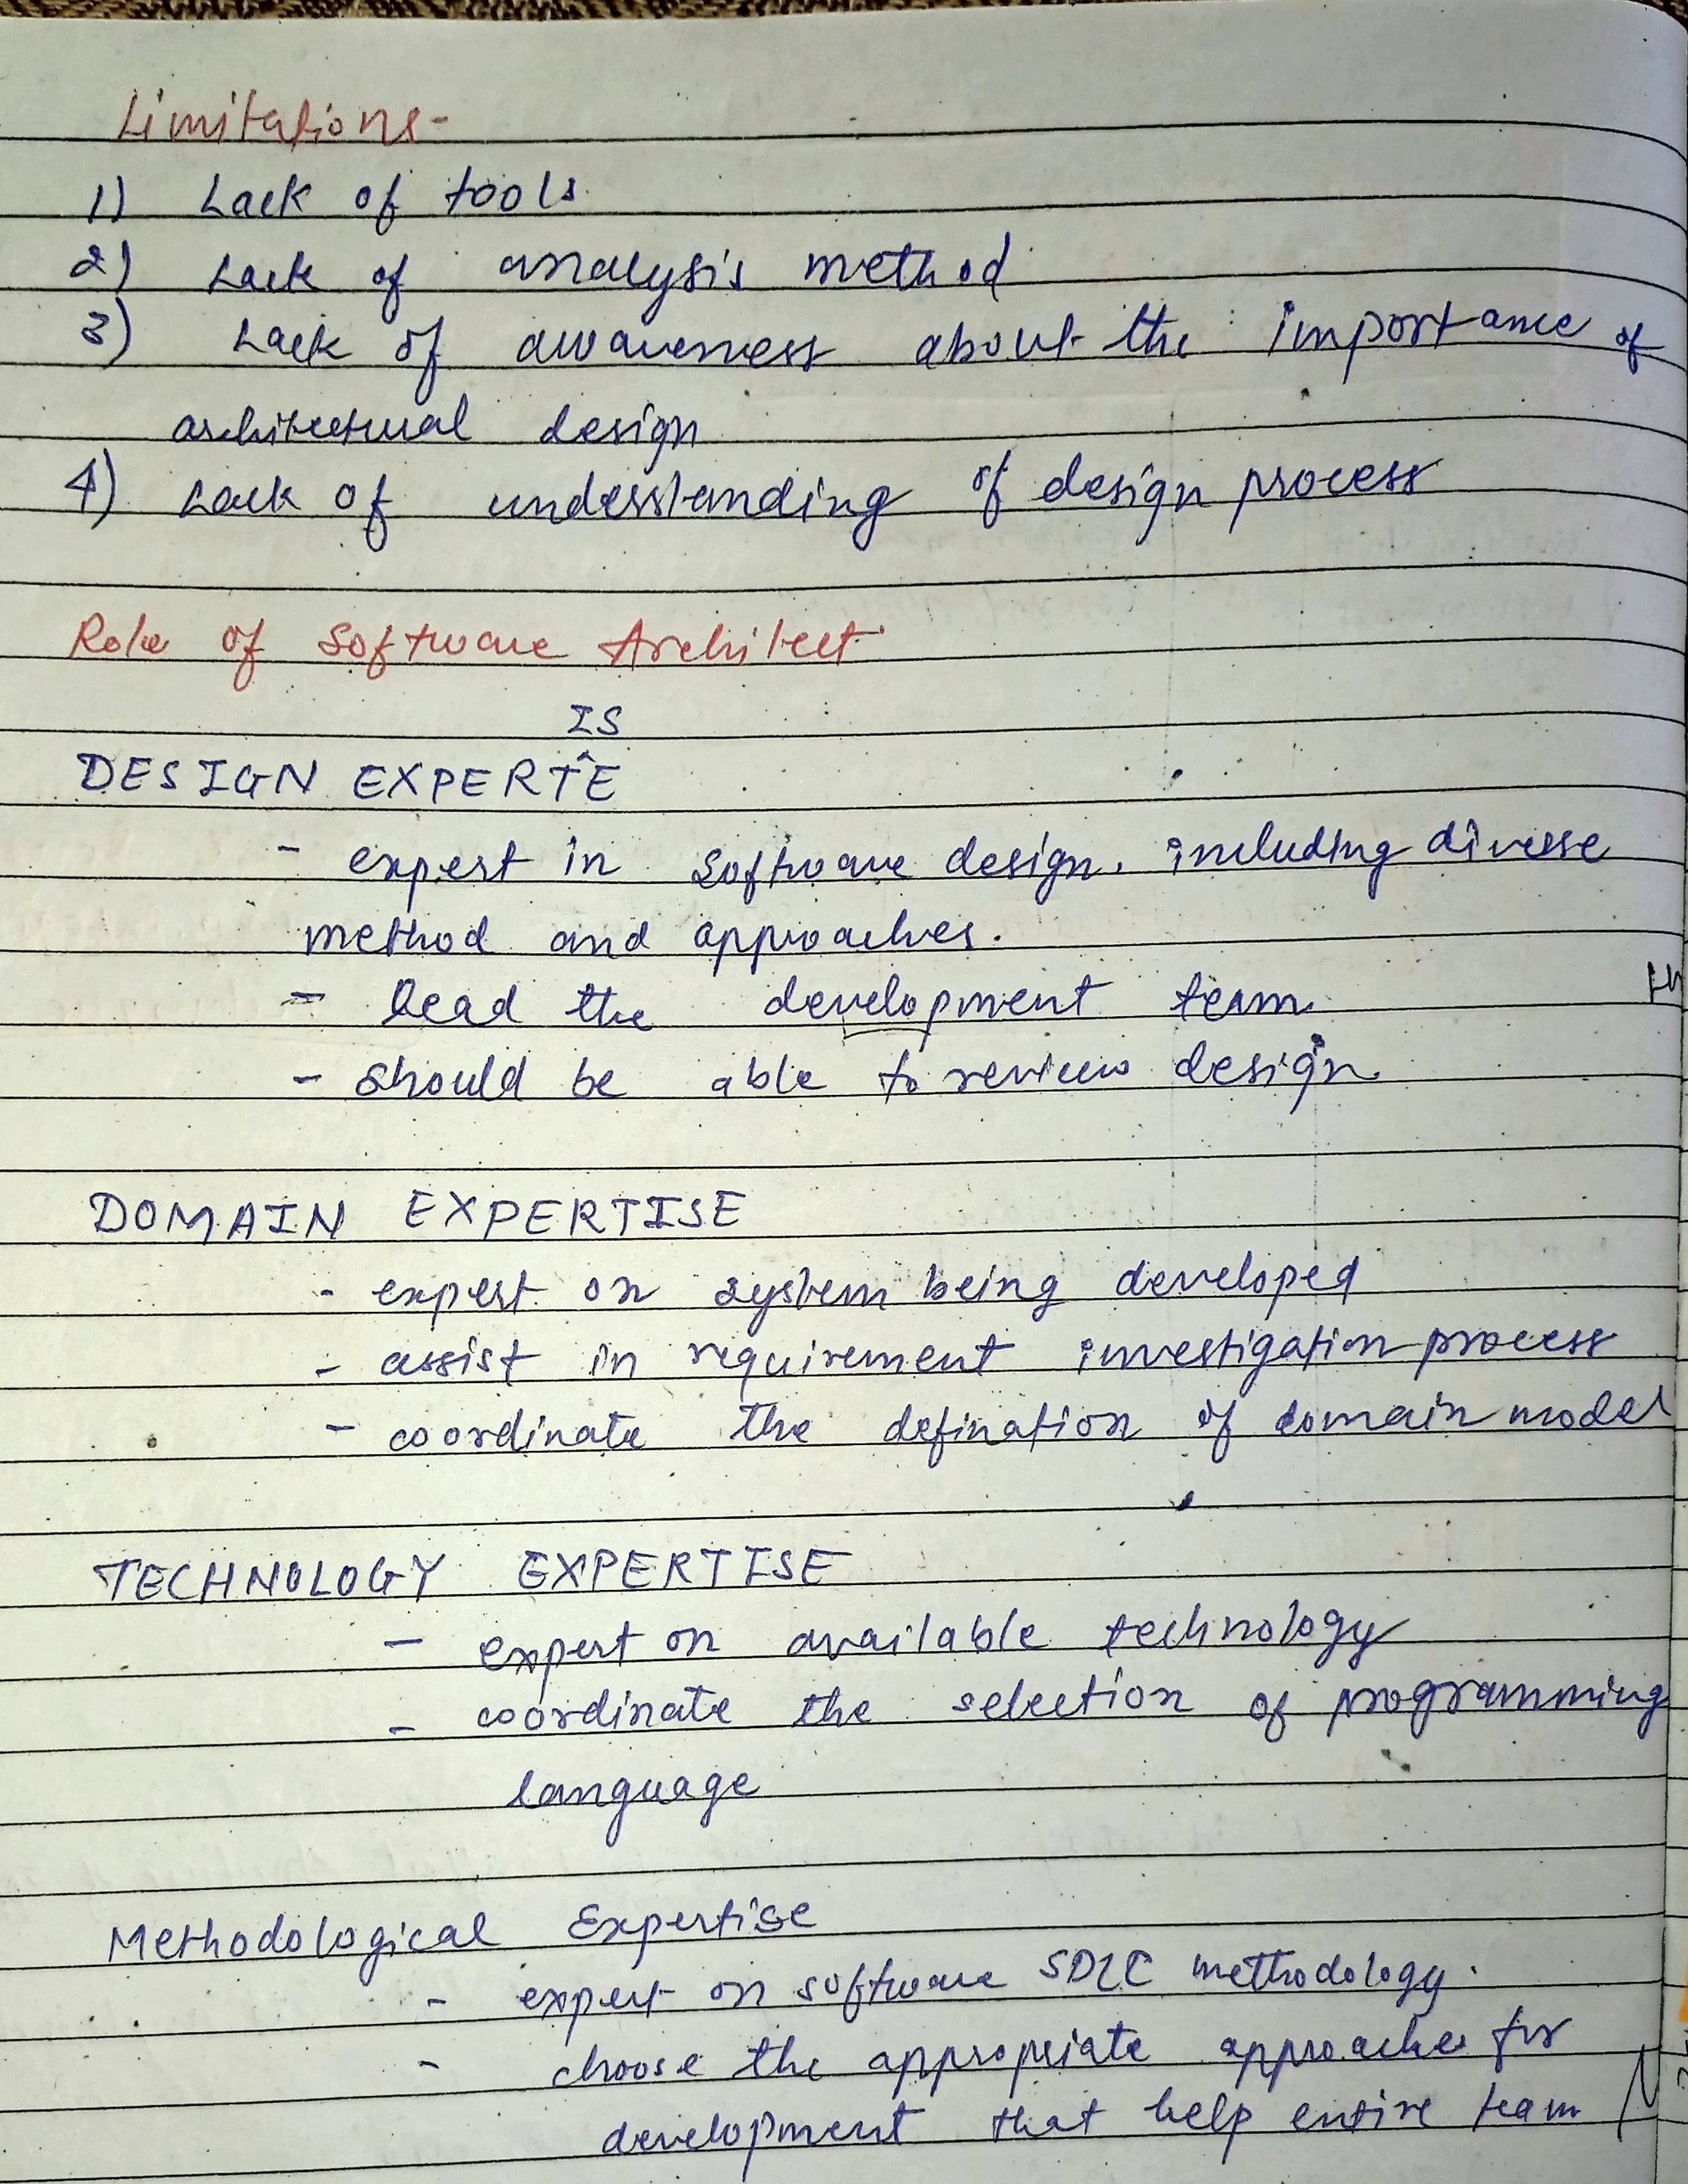 Limitations-
1) Lack of tools
2) Lack of analysis method
3) Lack of awareness about the importance of
architectural design
4) Lack of understanding of design process
Role of Software Architect
IS
DESIGN EXPERT^E
- expert in software design, including diverse
method and approaches.
- lead the development team.
- should be able to review design
DOMAIN EXPERTISE
- expert on system being developed
- assist in requirement investigation process
- coordinate the defination of domain model
TECHNOLOGY EXPERTISE
- expert on available technology
- coordinate the selection of programming
language
Methodological Expertise
- expert on software SDLC methodology.
- choose the appropriate approaches for
development that help entire team